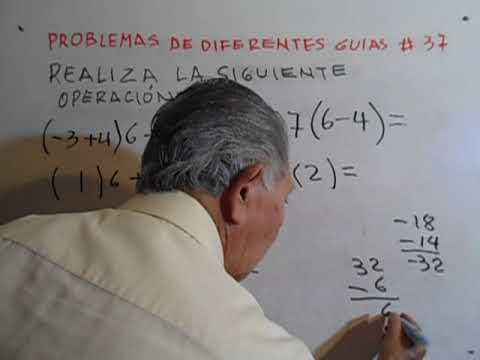 PROBLEMAS DE DIFERENTES GUIAS # 37
REALIZA LA SIGUIENTE
OPERACIÓN
(-3+4)6 7(6-4)=
(1)6+ (2)=
-18
-14
-32
32
-6
6